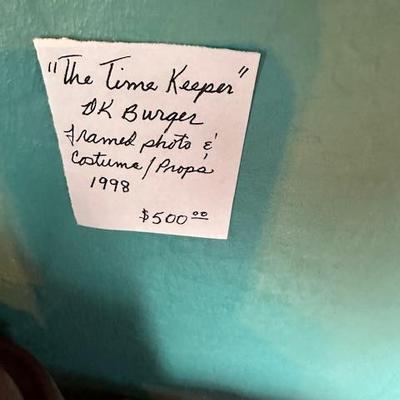 "The Time Keeper"
DK Burger
framed photo &
Costume/Props
1998
$500.00